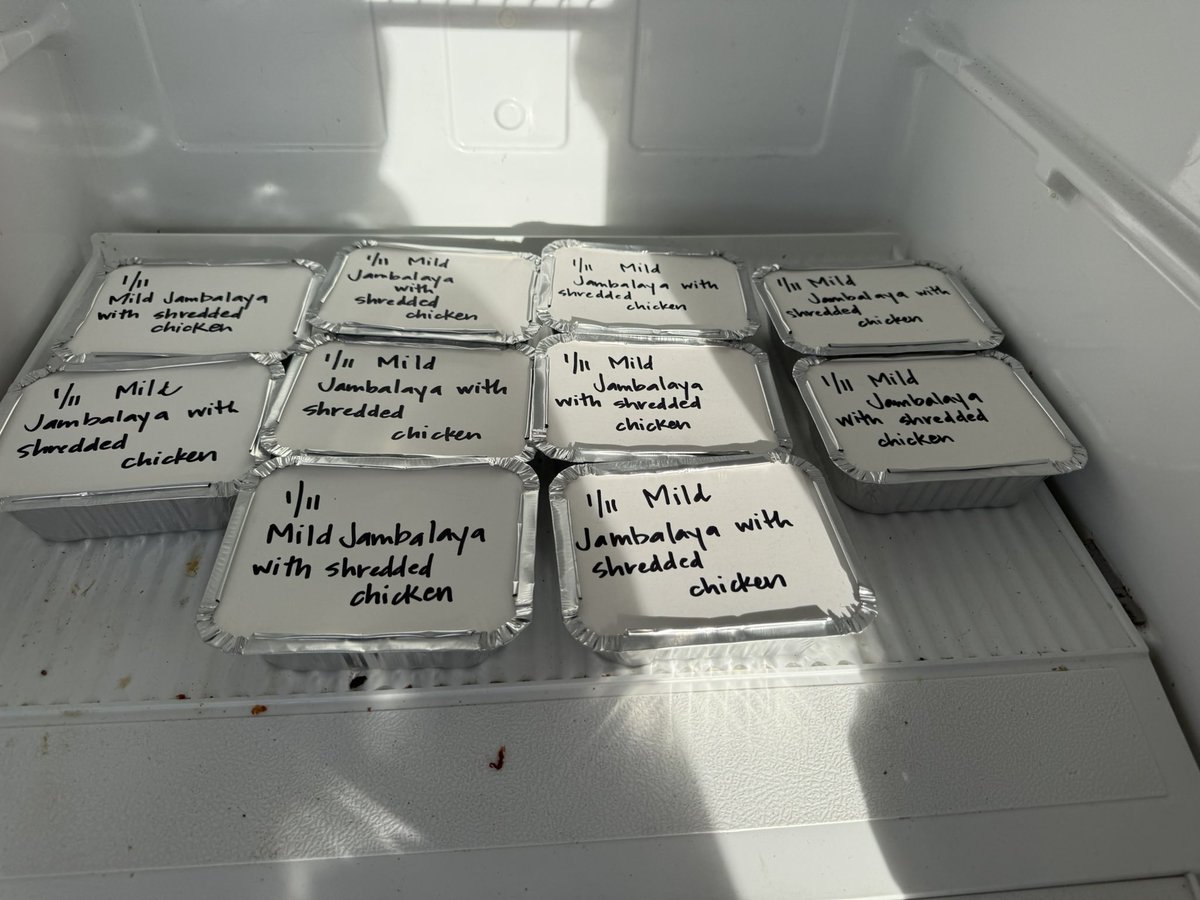 1/11
Mild Jambalaya
with shredded
chicken
1/11 Mild
Jambalaya
with
shredded
chicken
1/11 Mild
Jambalaya with
shredded
chicken
1/11 Mild
Jambalaya with
shredded
chicken
1/11 Mild
Jambalaya with
shredded
chicken
1/11 Mild
Jambalaya with
shredded
chicken
1/11 Mild
Jambalaya
with shredded
chicken
1/11 Mild
Jambalaya
with shredded
chicken
1/11
Mild Jambalaya
with shredded
chicken
1/11 Mild
Jambalaya with
shredded
chicken